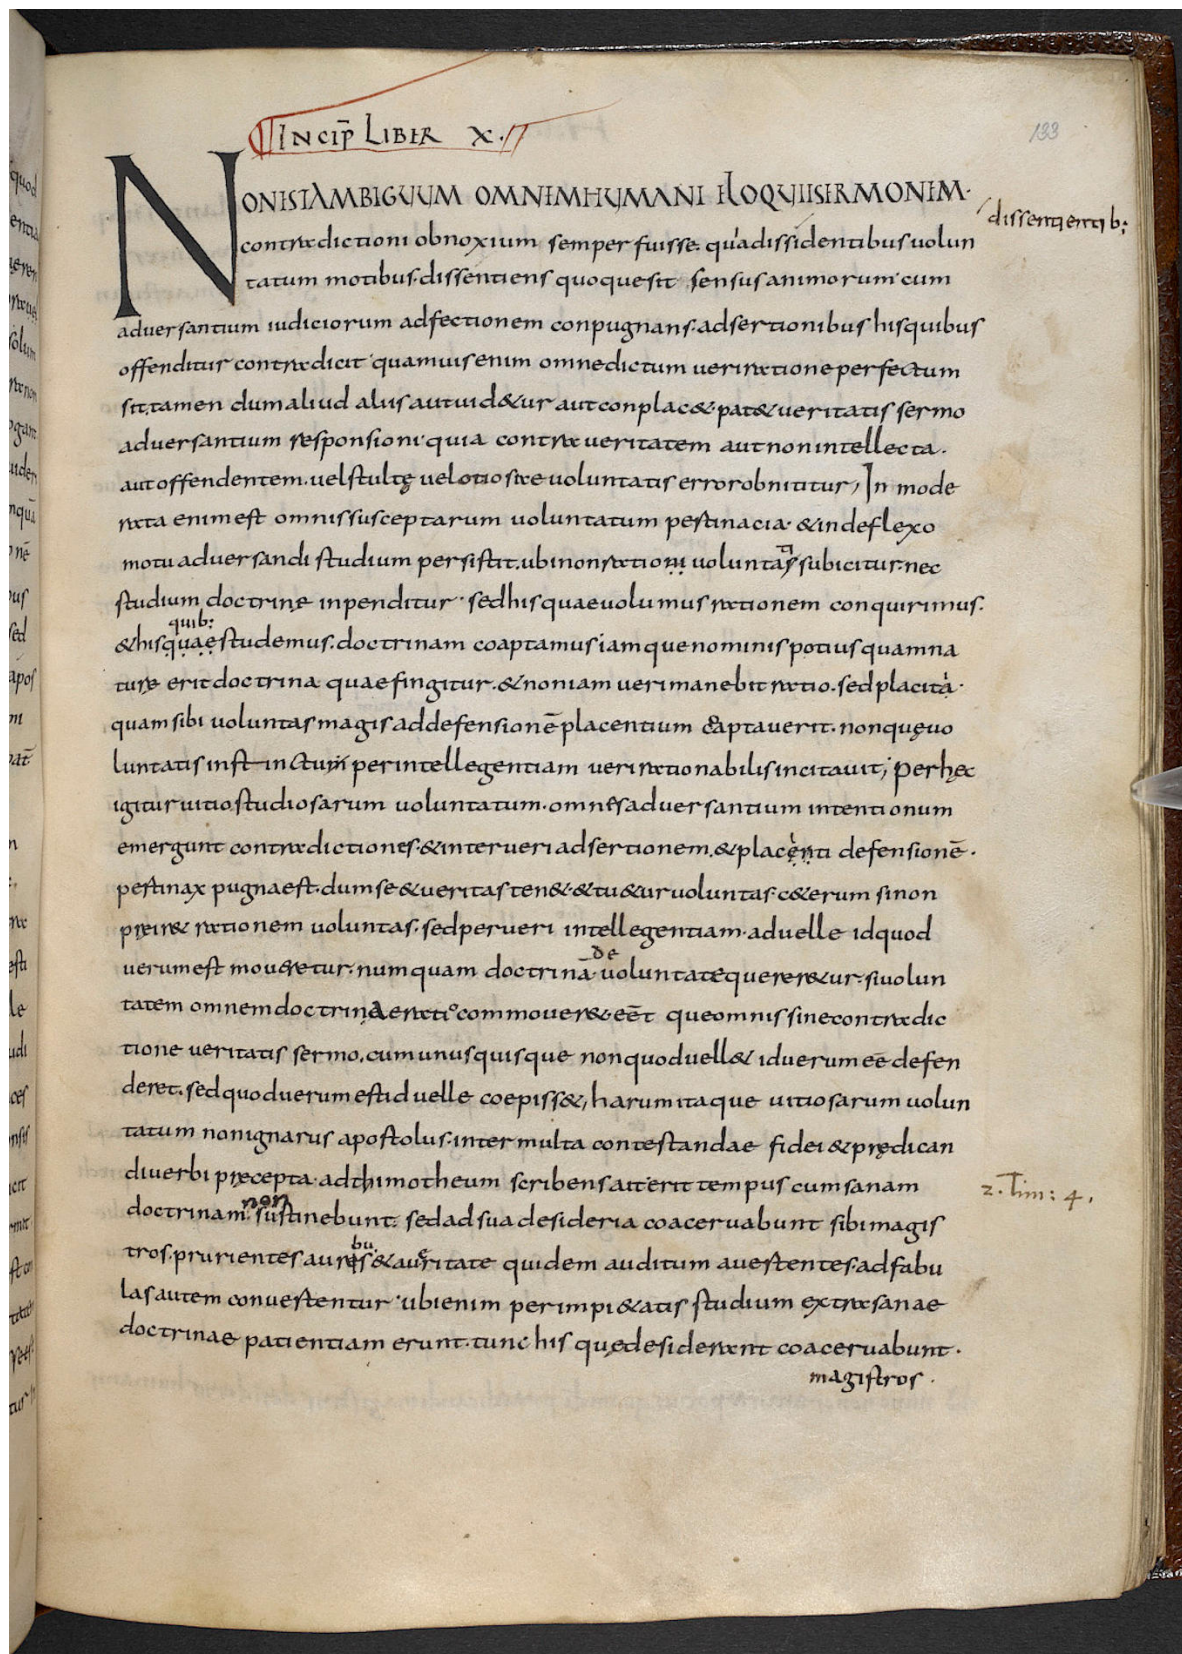 Incip̄ Liber X.
133
NON IST AMBIGUUM OMNIM HUMANI ELOQUII SERMONIM.
dissentientib:
contradictioni obnoxium semper fuisse. quia dissidentibus uolun
tatum motibus. dissentiens quoque sit sensus animorum. cum
aduersantium iudiciorum adfectionem conpugnans. adsertionibus his quibus
offenditur contradicit. quamuis enim omne dictum ueri ratione perfectum
sit. tamen dum aliud aliis aut uid&ur aut conplac&. pat& ueritatis sermo
aduersantium responsioni. quia contra ueritatem aut non intellectam.
aut offendentem. uel stultę uel otiosae uoluntatis error obnititur; In mode
rata enim est omnis susceptarum uoluntatum pertinacia. & indeflexo
motu aduersandi studium persistit. ubi non rationi uoluntas subicitur. nec
studium doctrinę inpenditur. sed his quae uolumus rationem conquirimus.
quib:
& his quae studemus. doctrinam coaptamus. iamque nominis potius quam na
turę erit doctrina quae fingitur. & non iam ueri manebit ratio. sed placita.
quam sibi uoluntas magis ad defensionē placentium captauerit. non quę uo
luntatis instinctum per intellegentiam ueri rationabilis incitauit; Per hęc
igitur uitio studiosarum uoluntatum. omnes aduersantium intentionum
emergunt contradictiones. & inter ueri adsertionem. & placenti defensionē.
pertinax pugna est. dum se & ueritas ten&. & tu&ur uoluntas. c&erum si non
pręir& rationem uoluntas. sed per ueri intellegentiam. ad uelle id quod
uerum est mouęretur. numquam doctrina de uoluntate quęreretur. si uolun
tatem omnem doctrinae ratio commouer&. eēt que omnis sine contradic
tione ueritatis sermo. cum unusquisque non quod uell& id uerum eē defen
deret. sed quod uerum est id uelle coepiss&; harum itaque uitiosarum uolun
tatum non ignarus apostolus. inter multa contestandae fidei & prędican
di uerbi pręcepta. ad thimotheum scribens ait. erit tempus cum sanam
2. Tim: 4.
doctrinam non sustinebunt. sed ad sua desideria coaceruabunt sibi magis
tros. prurientes aures & a ueritate quidem auditum auertentes. ad fabu
las autem conuertentur. ubi enim per impi&atis studium extra sanae
doctrinae patientiam erunt. tunc his quę desiderant coaceruabunt.
magistros.